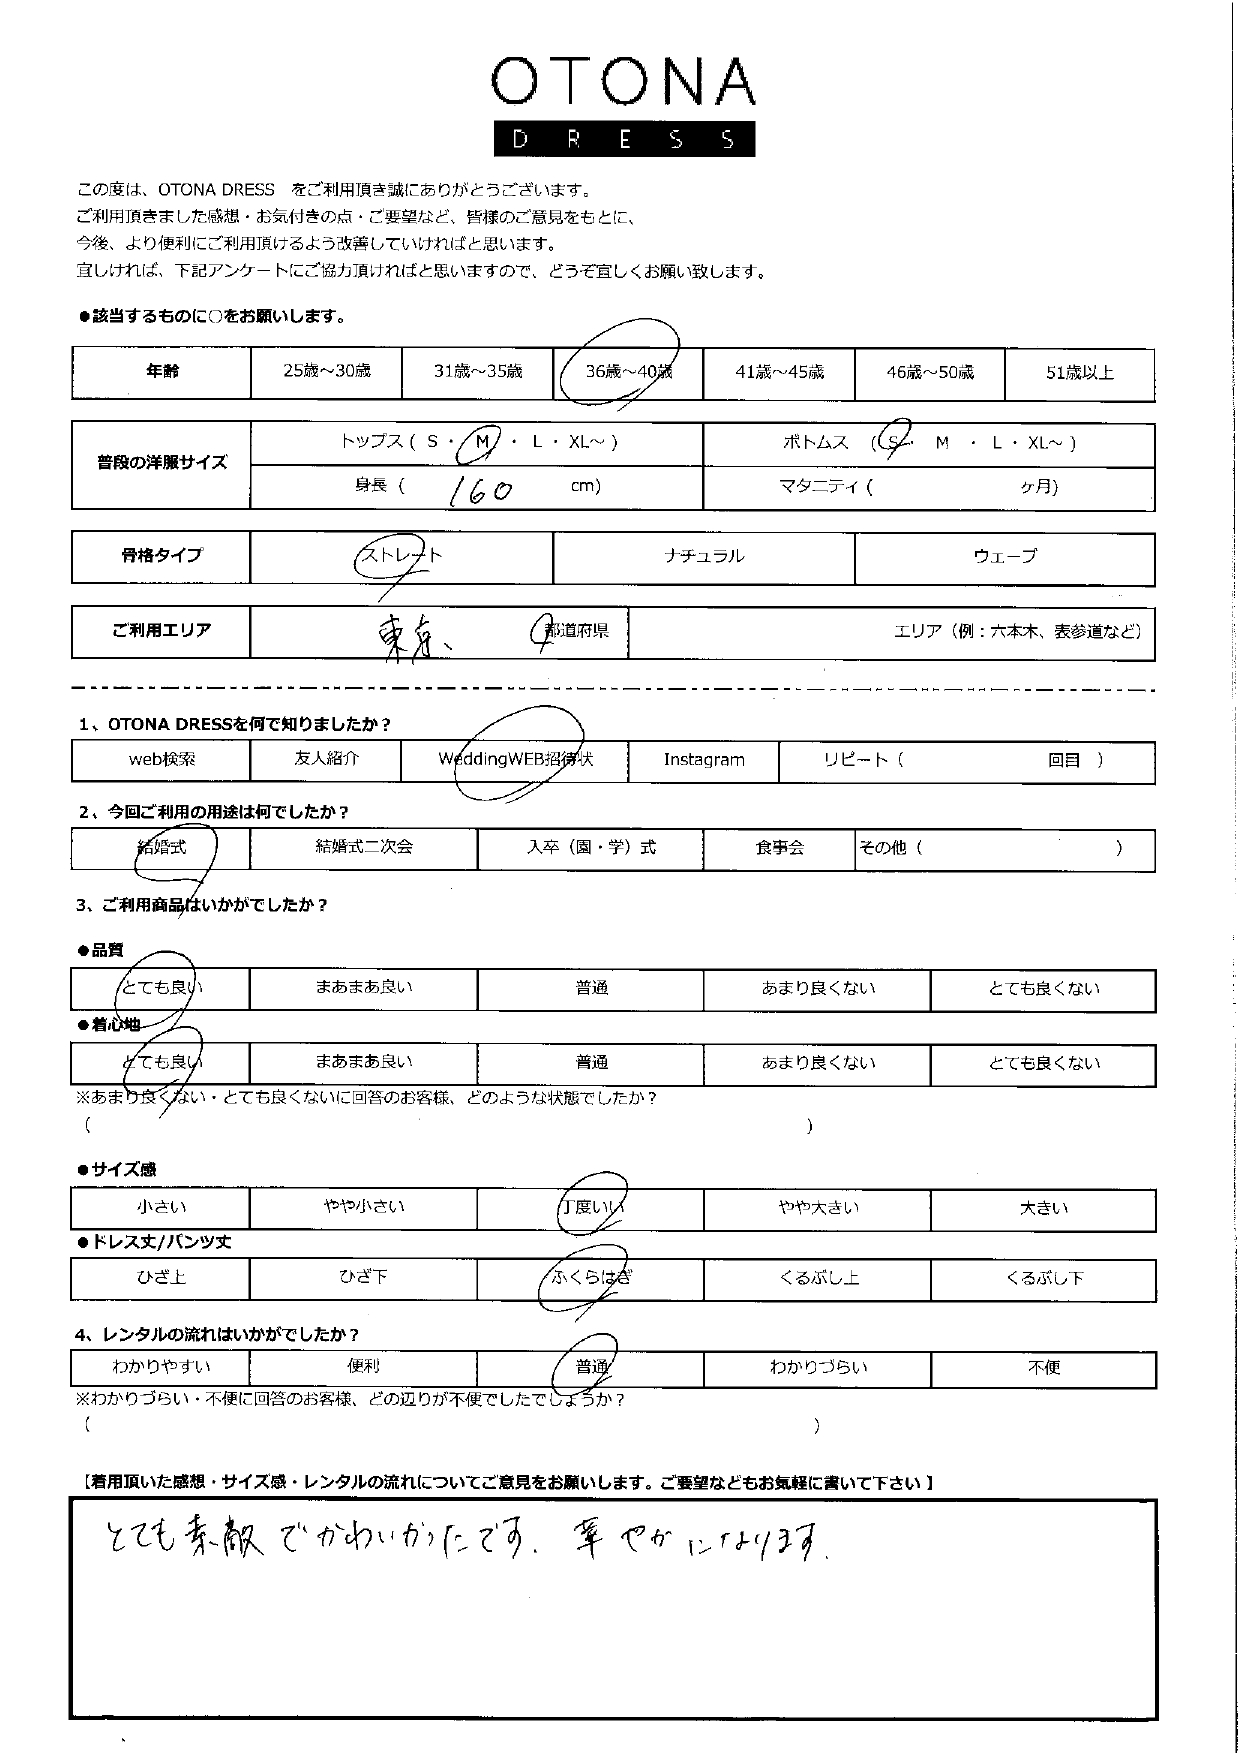 OTONA
DRESS
この度は、OTONA DRESS をご利用頂き誠にありがとうございます。
ご利用頂きました感想・お気付きの点・ご要望など、皆様のご意見をもとに、
今後、より便利にご利用頂けるよう改善していければと思います。
宜しければ、下記アンケートにご協力頂ければと思いますので、どうぞ宜しくお願い致します。
●該当するものに○をお願いします。
年齢 25歳～30歳 31歳～35歳 36歳～40歳 41歳～45歳 46歳～50歳 51歳以上
普段の洋服サイズ トップス ( S ・ M ・ L ・ XL～ ) ボトムス ( S ・ M ・ L ・ XL～ )
身長 ( 160 cm) マタニティ ( ヶ月)
骨格タイプ ストレート ナチュラル ウェーブ
ご利用エリア 東京、 都道府県 エリア（例：六本木、表参道など）
1、OTONA DRESSを何で知りましたか？
web検索 友人紹介 WeddingWEB招待状 Instagram リピート ( 回目 )
2、今回ご利用の用途は何でしたか？
結婚式 結婚式二次会 入卒（園・学）式 食事会 その他 ( )
3、ご利用商品はいかがでしたか？
●品質
とても良い まあまあ良い 普通 あまり良くない とても良くない
●着心地
とても良い まあまあ良い 普通 あまり良くない とても良くない
※あまり良くない・とても良くないに回答のお客様、どのような状態でしたか？
( )
●サイズ感
小さい やや小さい 丁度いい やや大きい 大きい
●ドレス丈/パンツ丈
ひざ上 ひざ下 ふくらはぎ くるぶし上 くるぶし下
4、レンタルの流れはいかがでしたか？
わかりやすい 便利 普通 わかりづらい 不便
※わかりづらい・不便に回答のお客様、どの辺りが不便でしたでしょうか？
( )
【着用頂いた感想・サイズ感・レンタルの流れについてご意見をお願いします。ご要望などもお気軽に書いて下さい 】
とても素敵でかわいかったです. 華やかになります.